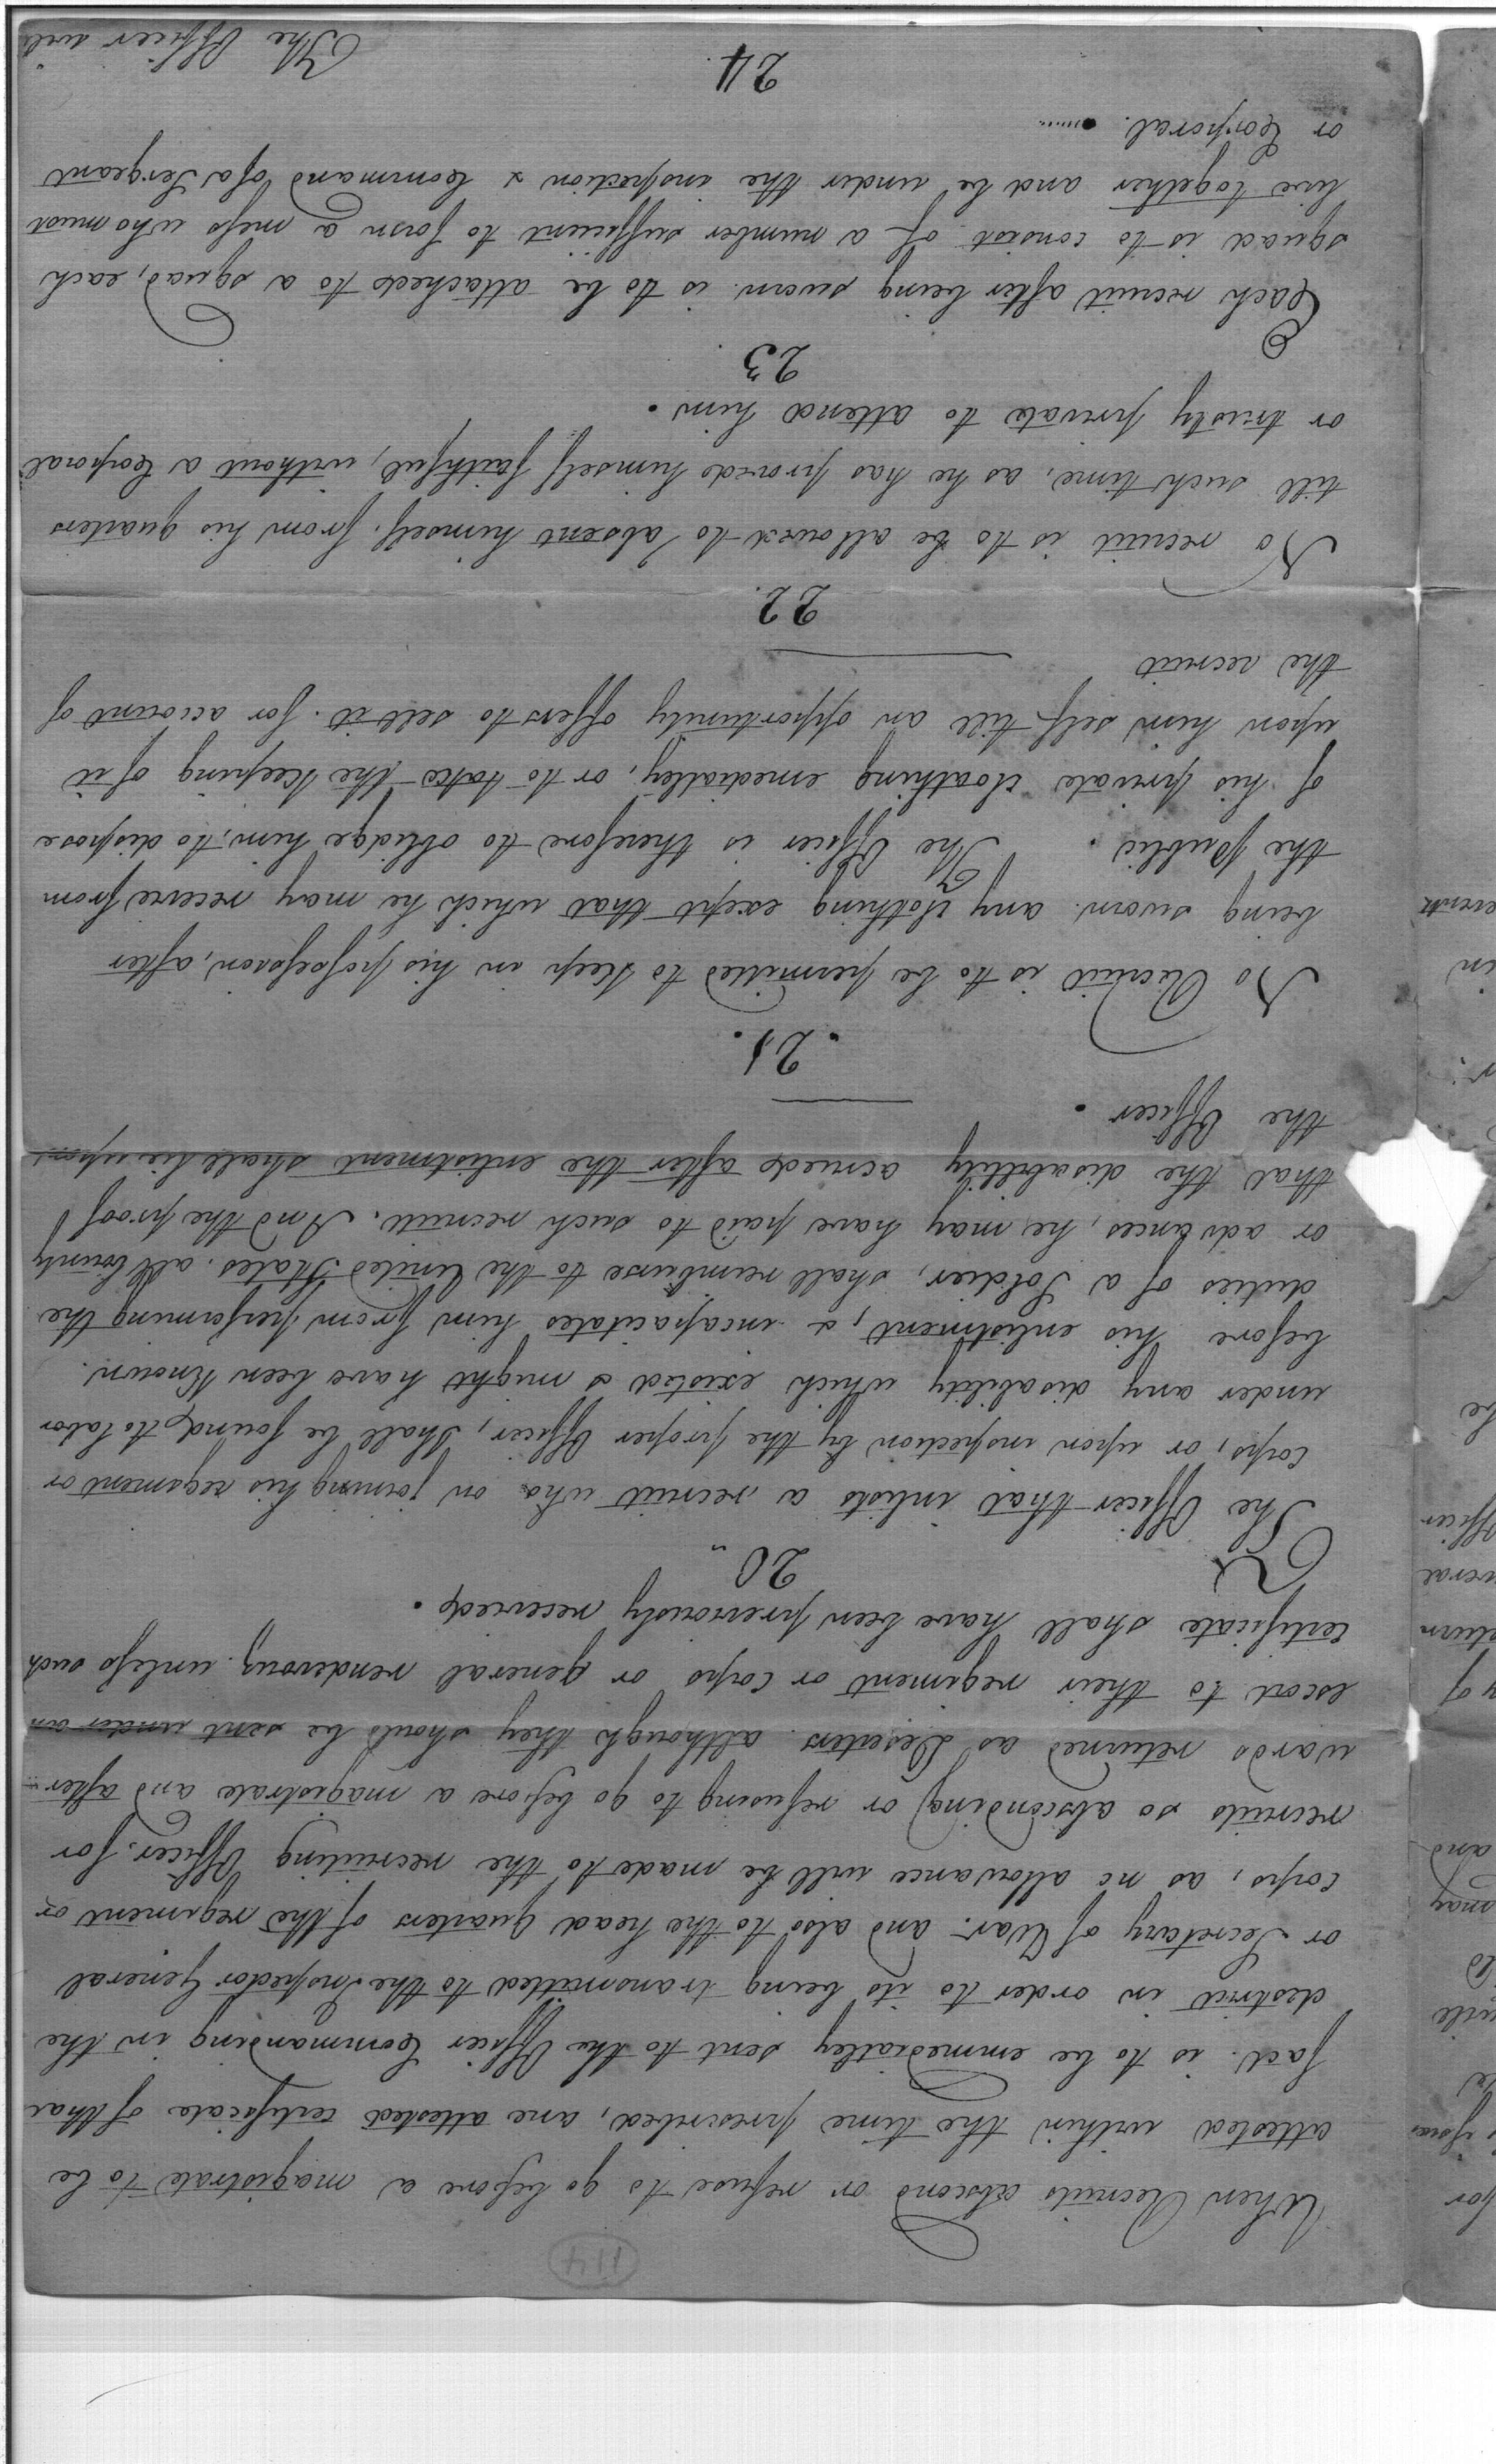 114
When Recruits abscond or refuse to go before a magistrate to be
attested within the time prescribed, ane attested certificate of that
fact. is to be emmediatley sent to the Officer Commanding in the
destrict in order to its being transmitted to the Inspector General
or Secretary of War. and also to the head quarters of the regiment or
corps, as no allowance will be made to the recruiting Officer. for
recruits so absconding or refusing to go before a magistrate and after
wards returned as Deserters. although they should be sent under an
escort to their regiment or corps or general rendevouz. unless such
certificate shall have been previously received.
20
The Officer that inlists a recruit who on joining his regiment or
corps, or upon inspection by the proper Officer, shall be found to labor
under any disability which existed & might have been Known.
before his enlistment, & incapacitates him from performing the
duties of a Soldier, shall reimburse to the United States. all bounty
or advances, he may have paid to such recruit. And the proof
that the disability acrued after the enlistment shall lie upon
the Officer.
21.
No Recruit is to be permitted to Keep in his possession, after
being sworn. any clothing except that which he may receive from
the Public. The Officer is therefore to obliedge him, to dispose
of his private cloathing emediatley, or to take the Keeping of it
upon him self till an opportunity offers to sell it. for account of
the recruit
22.
No recruit is to be allowed to absent himself. from his quarters
till such time, as he has provide himself faithful, without a Corporal
or trusty private to attend him.
23.
Each recruit after being sworn. is to be attached to a squad, each
squad is to consist of a number sufficient to form a mess who must
live together and be under the inspection & Command of a Sergeant
or Corporal.
24
The Officer will